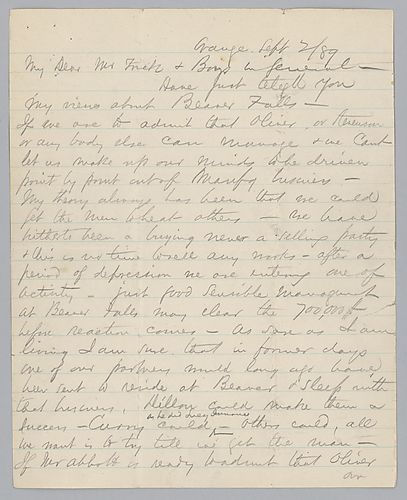 Orange. Sept 2/89
My Dear Mr Frick & Boys in General —
Have just telegh you
My views about Beaver Falls —
If we are to admit that Oliver, or
or any body else can manage & we Cant
let us make up our minds to be driven
point by point out of Manfg business —
My theory always has been that we could
get the Men to beat others — We have
hitherto been a buying never a selling party
& this is no time to sell any works — after a
period of depression we are entering one of
activity — just good sensible Management
at Beaver Falls may clear the 700000$
before reaction comes — As sure as I am
living I am sure that in former days
one of our partners would long ago have
been sent to reside at Beaver & sleep with
that business, Dillon could make them a
as he did
success — Curry could, — Others could, all
we want is to try till we get the man —
If Mr Abbott is ready to admit that Oliver
over